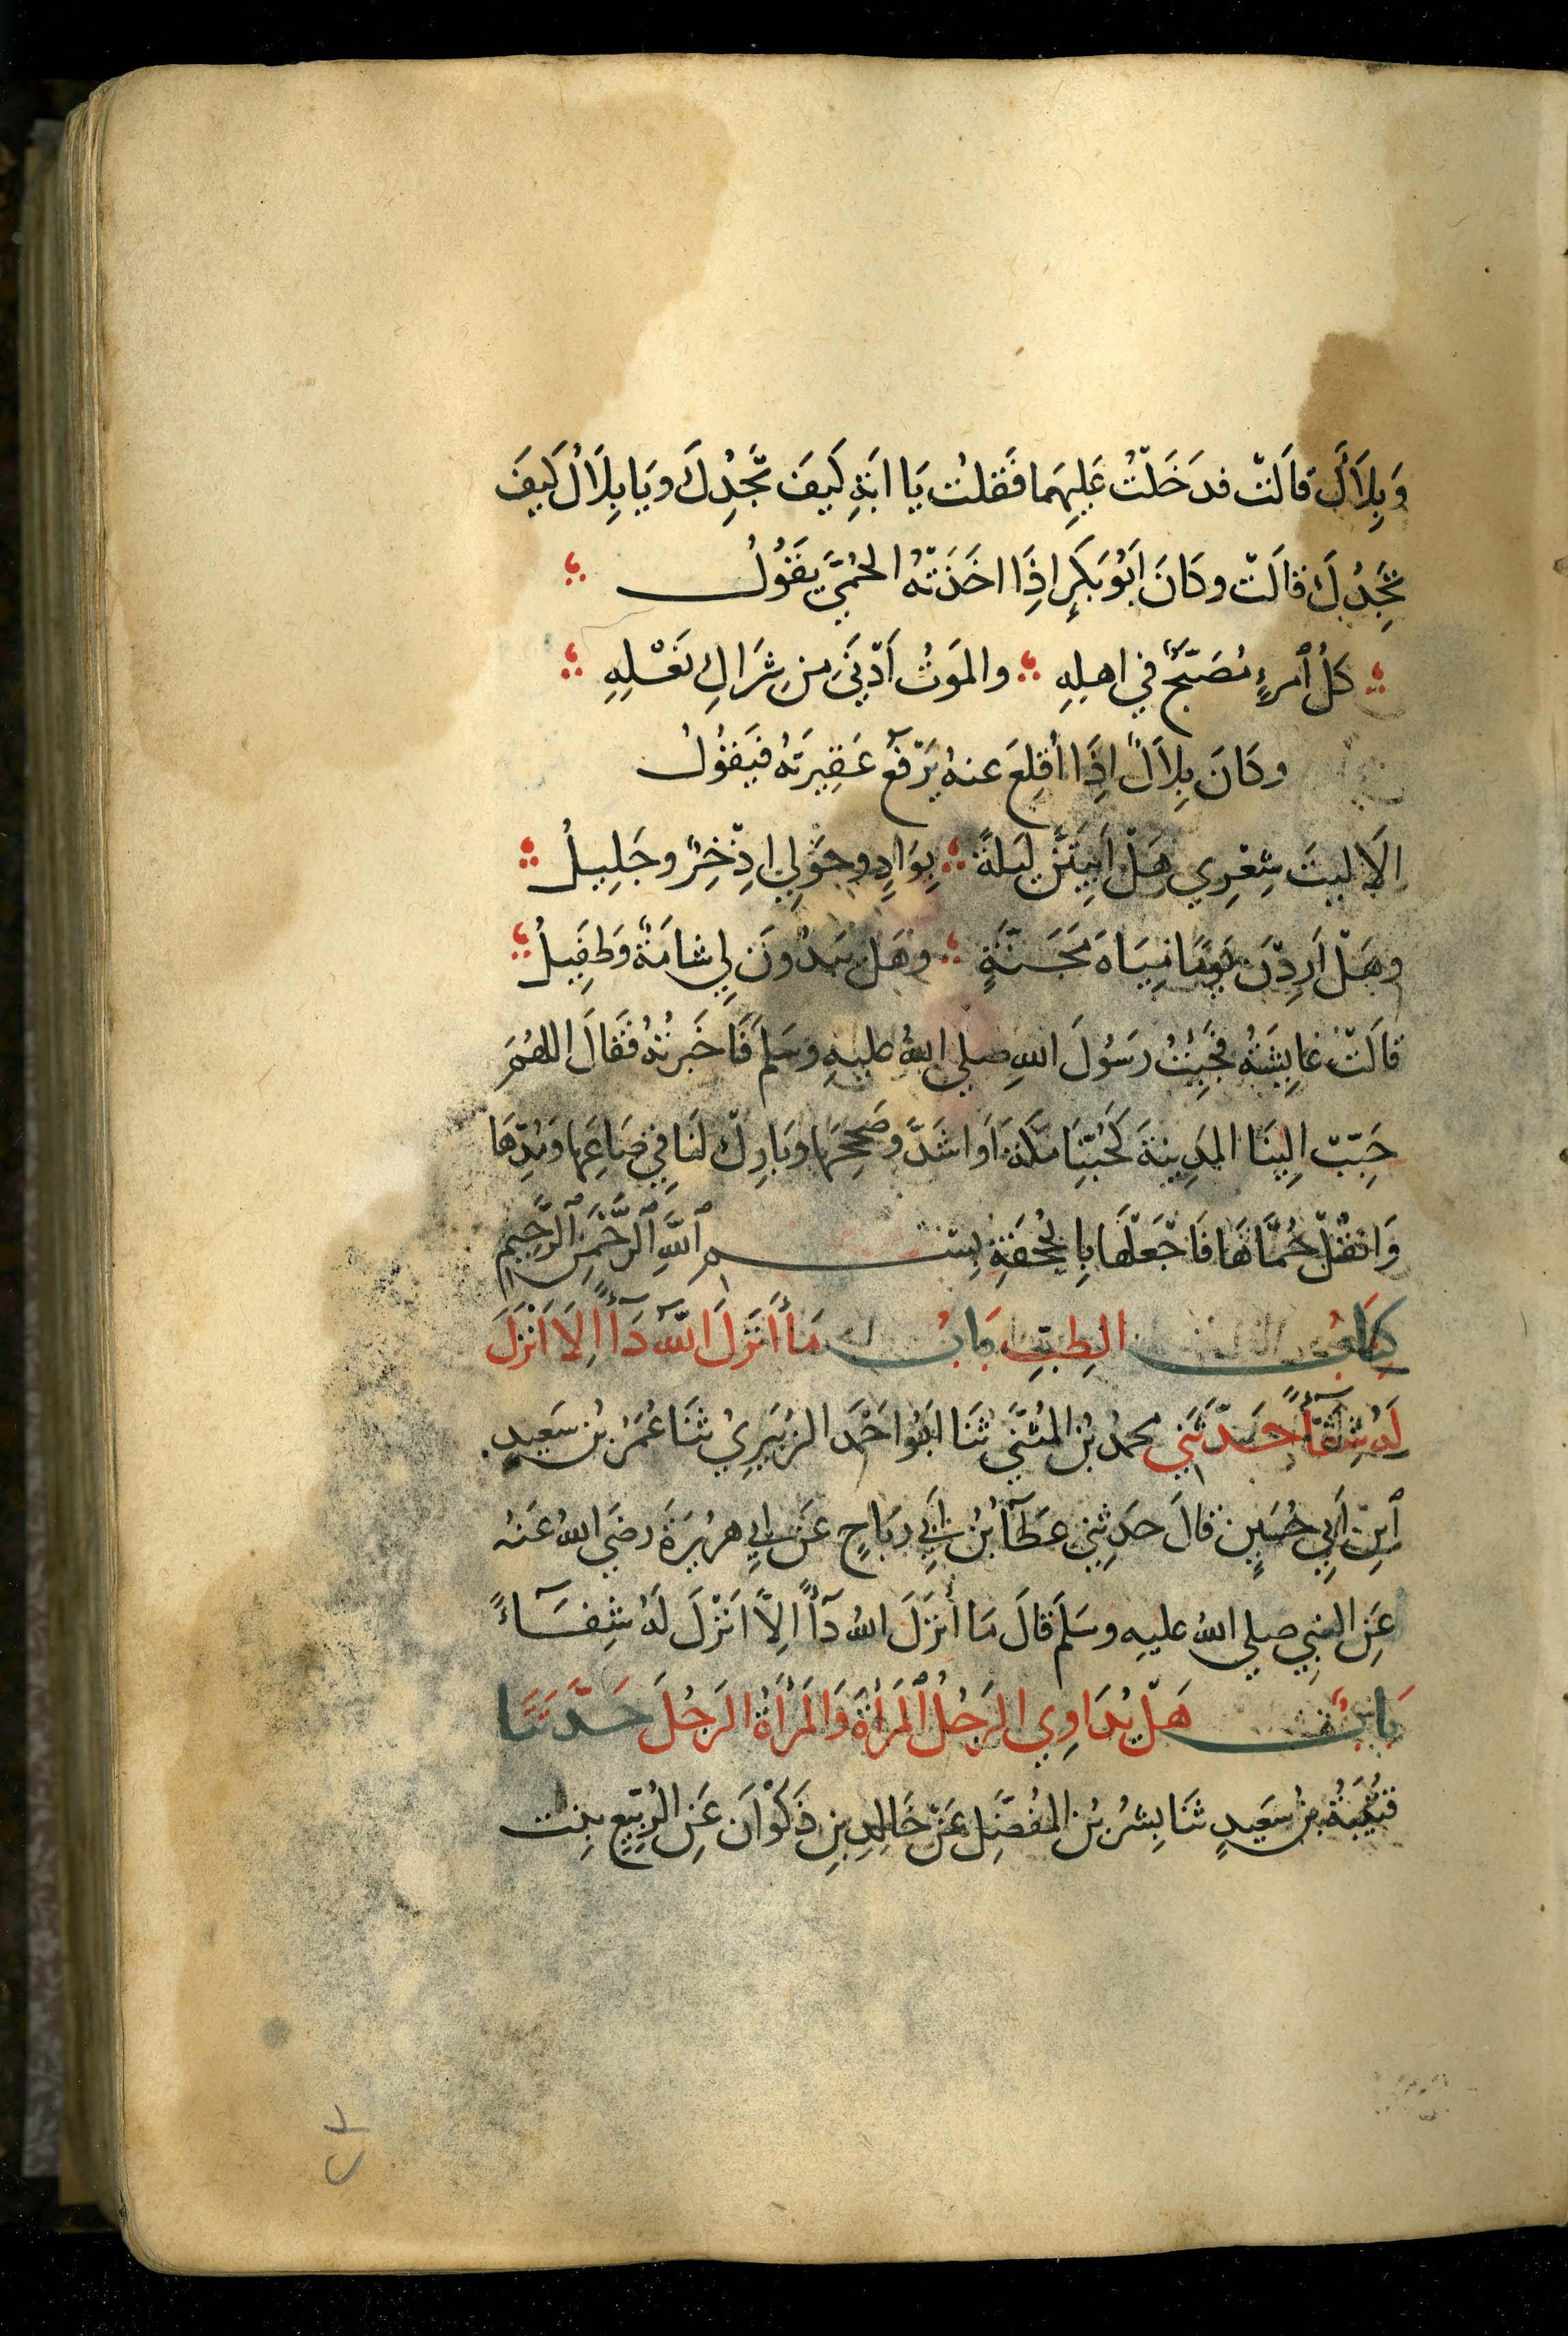 وَبِلَالٌ قَالَتْ فدَخَلْتُ عَلَيهِمَا فَقلتُ يَا ابَةِ كَيفَ تَجِدُكَ وَيَا بِلَالُ كَيفَ
تَجِدُكَ قالَتْ وكَانَ اَبُو بَكرٍ اِذَا اخَذَتْهُ الحُمَّى يَقُولُ
كلُّ ٱمرءٍ مُصَبَّحٌ في اهلِهِ والمَوتُ اَدْنَى مِن شِرَاكِ نَعْلِهِ
وكَانَ بِلَالٌ اِذَا اُقلِعَ عنهُ يَرْفَعُ عَقِيرَتهُ فَيَقُولُ
اَلَا ليتَ شِعْرِي هَلْ اَبِيتَنَّ لَيلَةً بِوَادٍ وحَوْلِي اِذْخِرٌ وجَلِيلُ
وهَلْ اَرِدْنَ يَومًا مِيَاهَ مَجَنَّةٍ وهَل يَبدُونَ لِي شامَةٌ وَطفِيلُ
قَالَتْ عَايِشَةُ فَجِئتُ رَسُولَ اللهِ صلى اللهُ عليهِ وسَلم فَاَخبَرتُهُ فَقَالَ اللهُمَّ
حَبِّبْ اِلَينَا المَدِينَةَ كَحُبِّنَا مَكَّةَ اَوَ اشَدَّ وصَحِّحهَا وبَارِكْ لنَا في صَاعِهَا وَمُدِّهَا
وَانقُلْ حُمَّاهَا فَاجْعَلْهَا بِالجُحْفَةِ بِسْمِ ٱللَّهِ ٱلرَّحْمَنِ ٱلرَّحِيمِ
كِتَابُ الطِبِّ بَابُ مَا أَنزَلَ اللهُ دَآءً اِلَا اَنْزَلَ
لَهُ شِفَآءً حَدَّثَنِي محمدُ بنُ المُثَنَّى ثَنَا اَبُو احْمَدَ الزُبَيرِيُ ثَنَا عُمَرُ بنُ سَعِيدِ
ٱبنِ اَبِي حُسَينٍ قالَ حَدثِني عَطَآءُ بنُ اَبِي رَبَاحٍ عَن ابِي هرُيرَةَ رضَي اللهُ عَنهُ
عَنِ النبِي صلى اللهُ عليهِ وسَلَم قَالَ مَا أَنزَلَ اللهُ دَآءً اِلَّا اَنْزَلَ لَهُ شِفَآءً
بَابٌ هَلْ يُدَاوِي الرَجُلُ ٱلمَرأَةَ وَالمَرأَةُ الرَجُلَ حَدَّثنَا
قُتَيبَةُ بنُ سَعِيدٍ ثنَا بِشرُ بنُ المفُضَّلِ عَنْ خَالِدِ بنِ ذَكْوَانَ عَنِ الرُبَيِّعِ بِنت